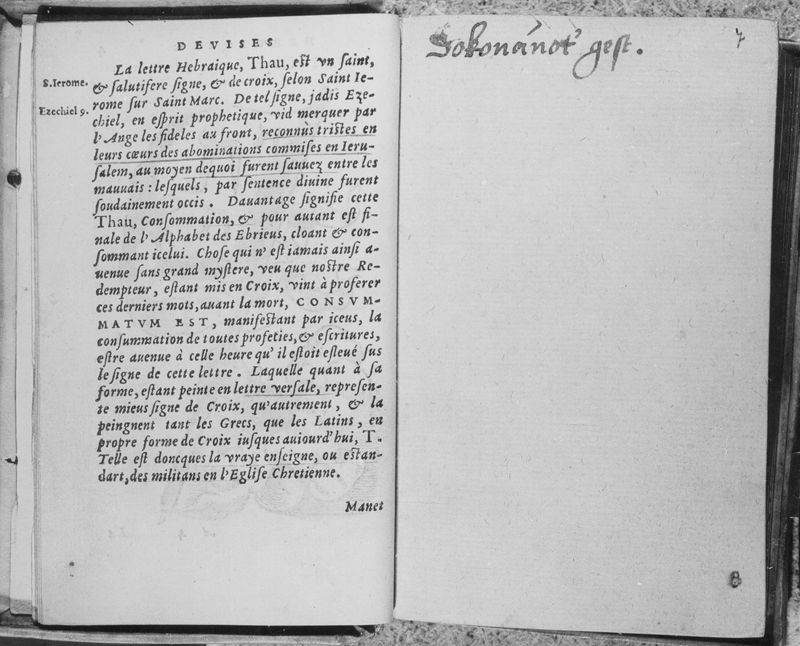 DEVISES
La lettre Hebraique, Thau, est vn saint,
S.Ierome.
& salutifere signe, & de croix, selon Saint Ie-
rome sur Saint Marc. De tel signe, jadis Eze-
Ezechiel 9.
chiel, en esprit prophetique, vid merquer par
l'Ange les fideles au front, reconnùs tristes en
leurs cœurs des abominations commises en Ieru-
salem, au moyen dequoi furent sauuez entre les
mauuais : lesquels, par sentence diuine furent
soudainement occis. Dauantage signifie cette
Thau, Consommation, & pour autant est fi-
nale de l'Alphabet des Ebrieus, cloant & con-
sommant icelui. Chose qui n'est iamais ainsi a-
uenue sans grand mystere, veu que nostre Re-
dempteur, estant mis en Croix, vint à proferer
ces derniers mots, auant la mort, CONSVM-
MATVM EST, manifestant par iceus, la
consummation de toutes profeties, & escritures,
estre auenue à celle heure qu'il estoit esleué sus
le signe de cette lettre. Laquelle quant à sa
forme, estant peinte en lettre versale, represen-
te mieus signe de Croix, qu'autrement, & la
peingnent tant les Grecs, que les Latins, en
propre forme de Croix iusques auiourd'hui, T.
Telle est doncques la vraye enseigne, ou estan-
dart, des militans en l'Eglise Chretienne.
Manet
gest.
7
8